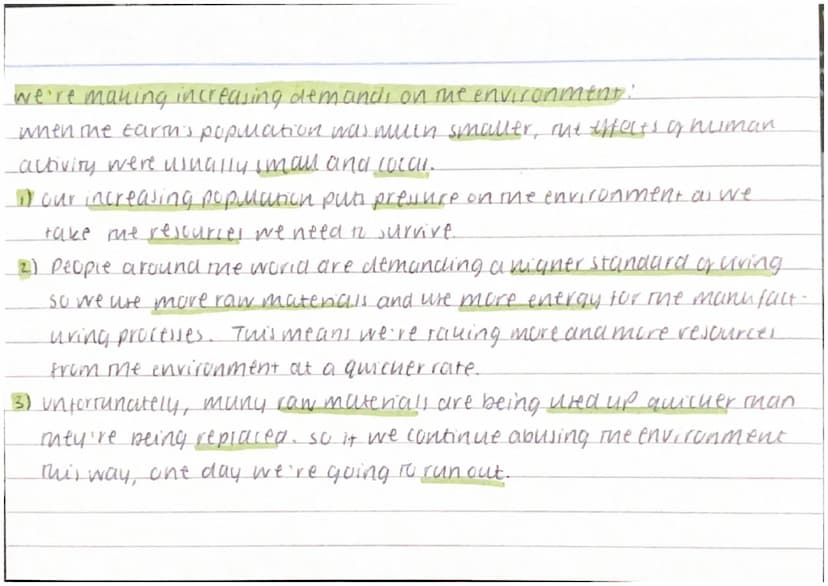 we're making increasing demands on the environment:
when the Earth's population was much smaller, the effects of human
activity were usually small and local.
1) our increasing population puts pressure on the environment as we
take the resources we need to survive.
2) People around the world are demanding a higher standard of living
so we use more raw materials and use more energy for the manufact-
uring processes. This means we're taking more and more resources
from the environment at a quicker rate.
3) unfortunately, many raw materials are being used up quicker than
they're being replaced. so if we continue abusing the environment
this way, one day we're going to run out.